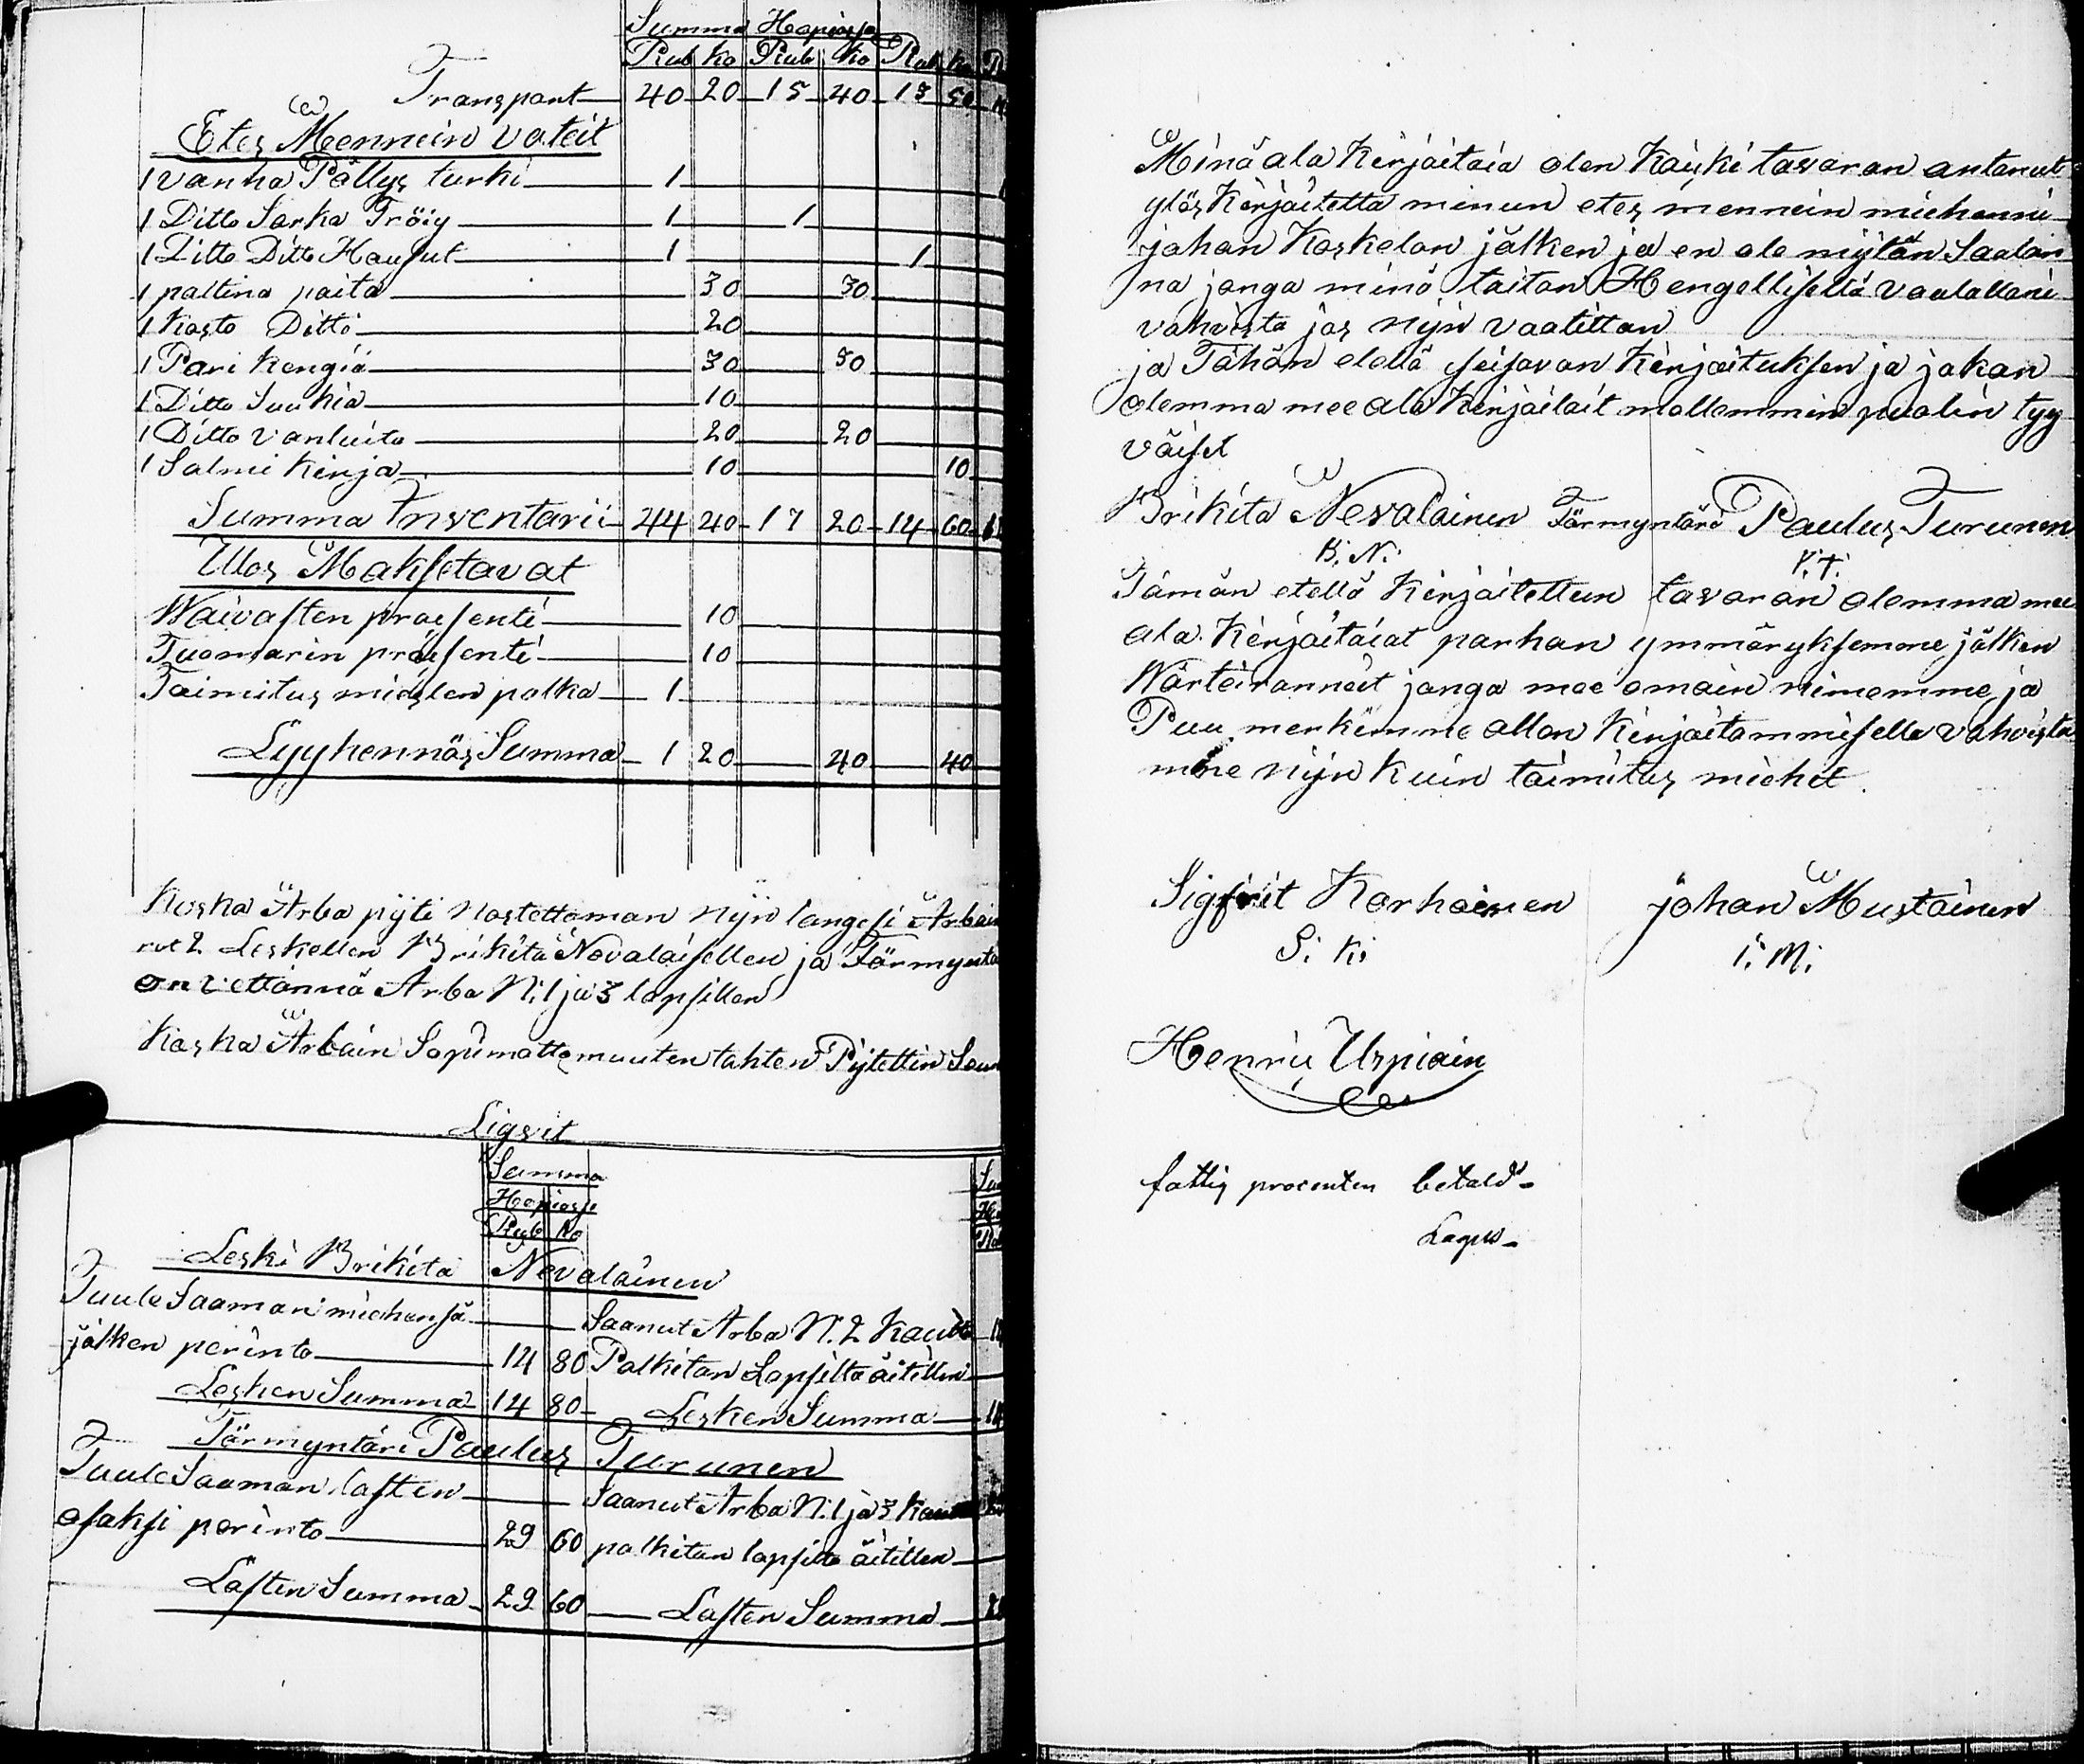 Summa Hopiassa
Rub Ko Rub Ko Rub Ko
Transport 40 20 15 40 13 50
Etes Mennein vateit
1 vanha Pällys turki 1
1 Ditto Sarka Tröiy 1 1
1 Ditto Ditto Housut 1 1
1 paltina paita 30 30
1 Kasto Ditto 20
1 Pari Kengiä 30 30
1 Ditto Suukia 10
1 Ditto vanluita 20 20
1 Salmi Kirja 10 10
Summa Inventarii 44 40 17 20 14 60
Ulos Maksetavat
Waivasten präsenti 10
Tuomarin präsenti 10
Toimitus miesten palka 1
Lyyhennös Summa 1 20 40 40
Koska Arba pyti Nostettaman nyn langesi
2 Leskellen Brikita Nevalaisellen ja
on vettännä Arba N:1 ja 3 lapsillen
Koska Arbain Sopimattomuuten tahten Pytettin
Ligvit
Summa
Hopiassa
Rub Ko
Leski Brikita Nevalainen
Tuule Saaman miehensä Saanut Arba N:2 Kautta
jälken perinto 14 80 Palkitan Lapsilta äitillen
Lesken Summa 14 80 Lesken Summa
Förmyntäri Paulus Turunen
Tuule Saaman lasten Saanut Arba N:1 ja 3
osaksi perinto 29 60 palkitan lapsilta äitillen
Lasten Summa 29 60 Lasten Summa
Minä ala Kirjaitaia olen Kaiki tavaran antanut
ylös Kirjaitetta minun etes mennein mieheni
johan Koskelon jälken ja en ole mytän Saalan
na jonga minö taitan Hengellisellä vaalallani
vahvista jos nyn vaatittan
ja Tähän etellä seisovan Kirjaituksen ja jakon
olemma mee ala Kirjaitait mollemmin puolin tyy
väiset
Brikita Nevalainen Förmyntäri Paulus Turunen
B. N. P. T.
Tämän etellä Kirjaitettun tavaran olemma mee
ala Kirjaitaiat parhan ymmäryksemme jälken
Wärteiranneit jonga mee omain nimemme ja
Puu merkimme allan Kirjaitammisella vahvista
mme nyn kuin toimitus miehet.
Sigfrit Karhainen johan Mustainen
S. K. I. M.
Henric Urpiain
fattig procenten betald